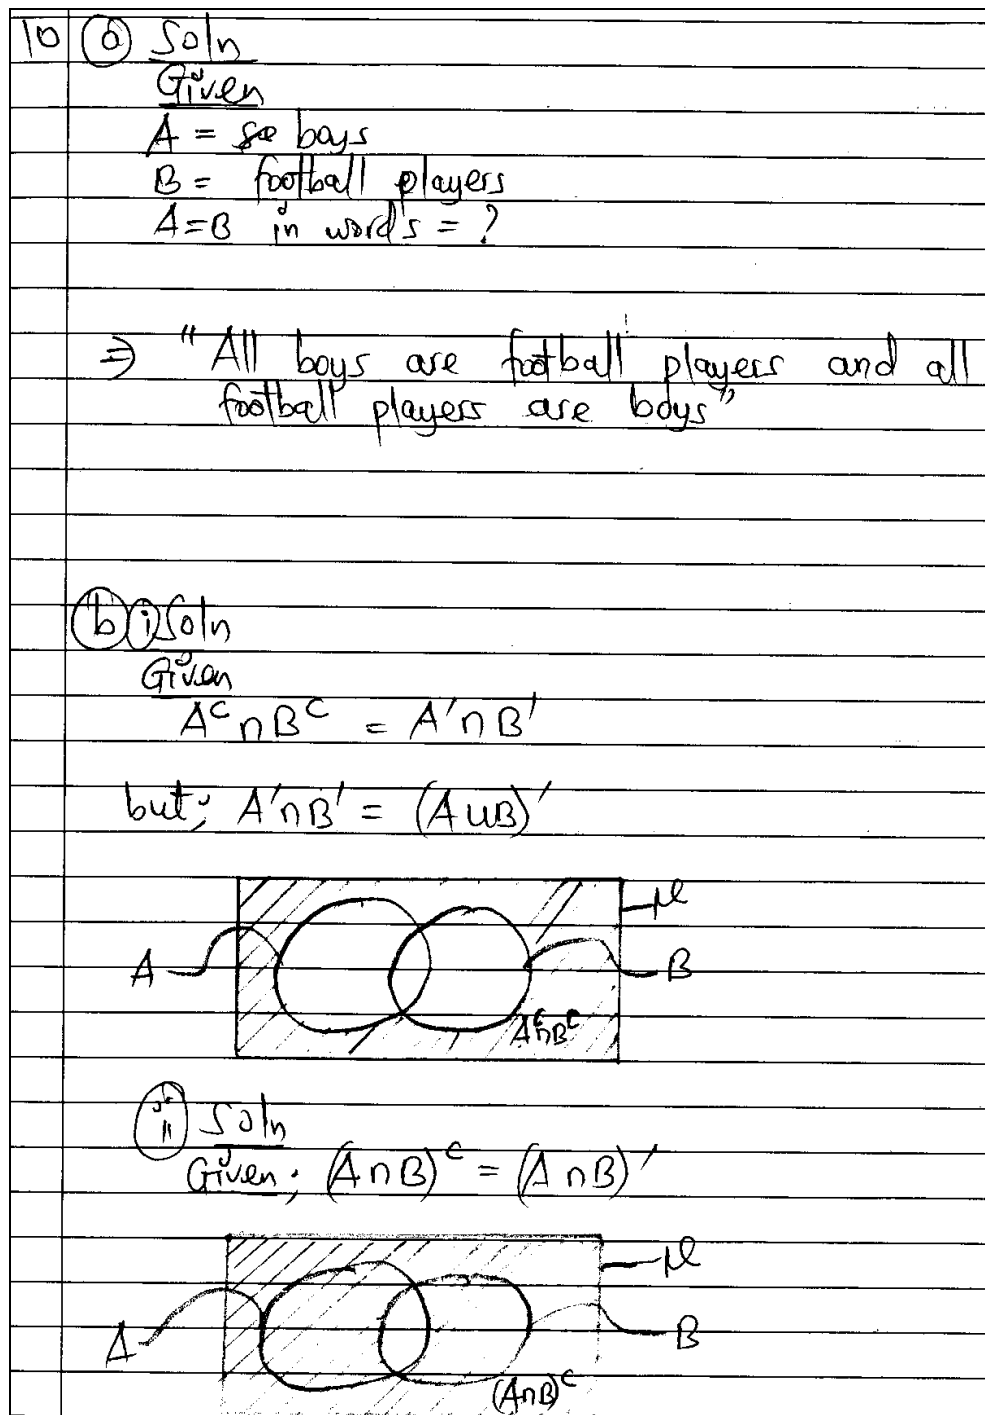 10 (a) Soln
Given
A = boys
B = football players
A=B in word's = ?
⇒ "All boys are football players and all
football players are boys"
(b) (i) Soln
Given
Aᶜ ∩ Bᶜ = A' ∩ B'
but; A'∩B' = (A∪B)'
μ
A
B
Aᶜ∩Bᶜ
(ii) Soln
Given; (A∩B)ᶜ = (A∩B)'
μ
A
B
(A∩B)ᶜ